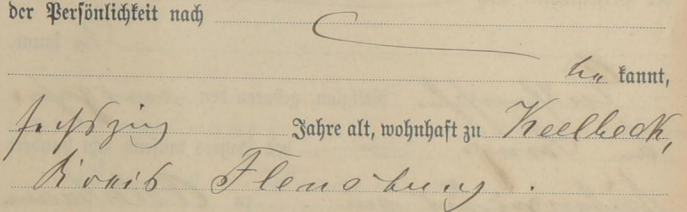 der Persönlichkeit nach
be kannt,
sechszig Jahre alt, wohnhaft zu Keelbeck,
Kreis Flensburg.